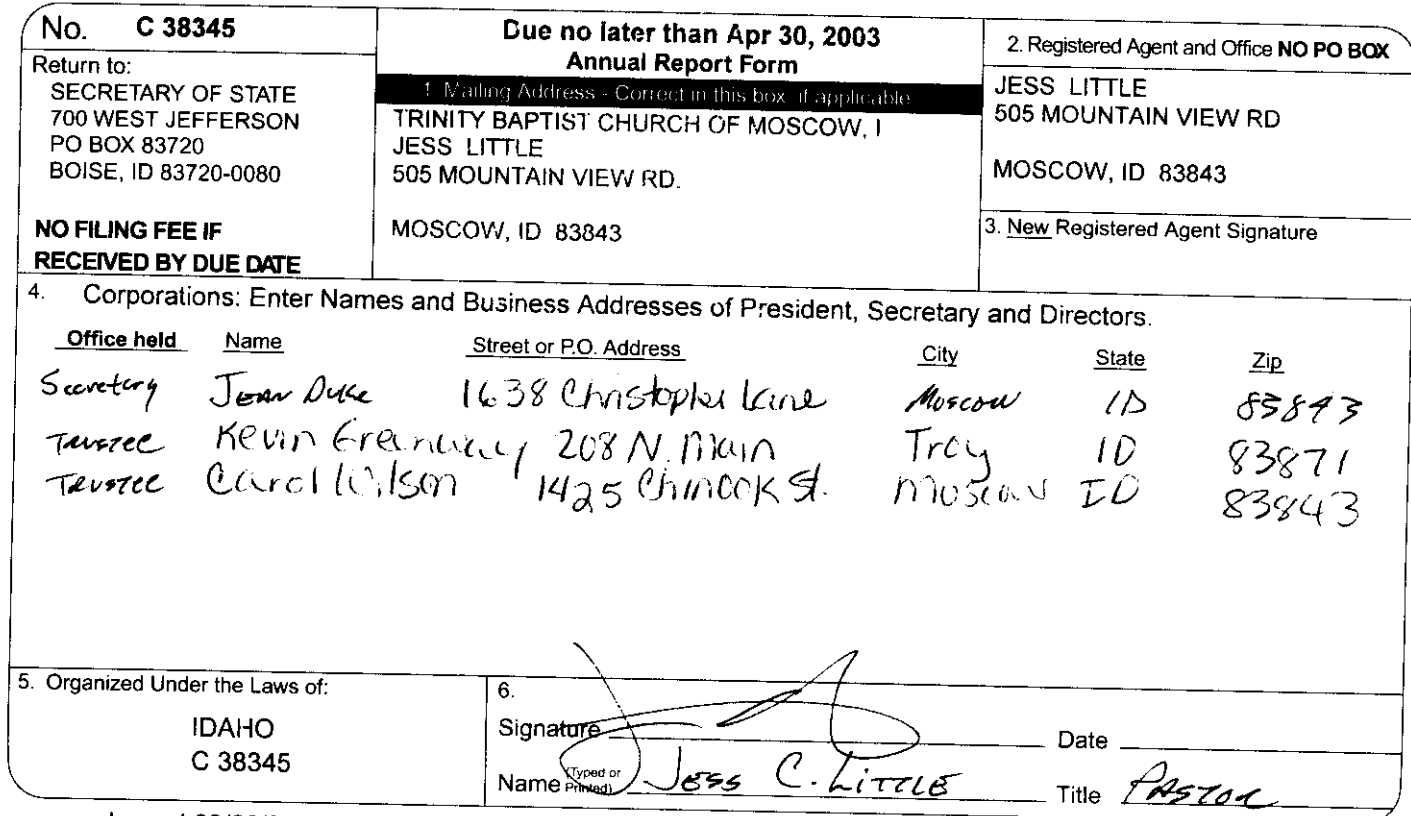 No. C 38345
Return to:
SECRETARY OF STATE
700 WEST JEFFERSON
PO BOX 83720
BOISE, ID 83720-0080
NO FILING FEE IF
RECEIVED BY DUE DATE
Due no later than Apr 30, 2003
Annual Report Form
1. Mailing Address - Correct in this box, if applicable
TRINITY BAPTIST CHURCH OF MOSCOW, I
JESS LITTLE
505 MOUNTAIN VIEW RD.
MOSCOW, ID 83843
2. Registered Agent and Office NO PO BOX
JESS LITTLE
505 MOUNTAIN VIEW RD
MOSCOW, ID 83843
3. New Registered Agent Signature
4. Corporations: Enter Names and Business Addresses of President, Secretary and Directors.
Office held Name Street or P.O. Address City State Zip
Secretary JEAN DUKE 1638 Christopher Lane Moscow ID 83843
Trustee Kevin Greenway 208 N. Main Troy ID 83871
Trustee Carol Wilson 1425 Chinook St. Moscow ID 83843
5. Organized Under the Laws of:
IDAHO
C 38345
6.
Signature Date
Name (Typed or Printed) JESS C. LITTLE Title PASTOR